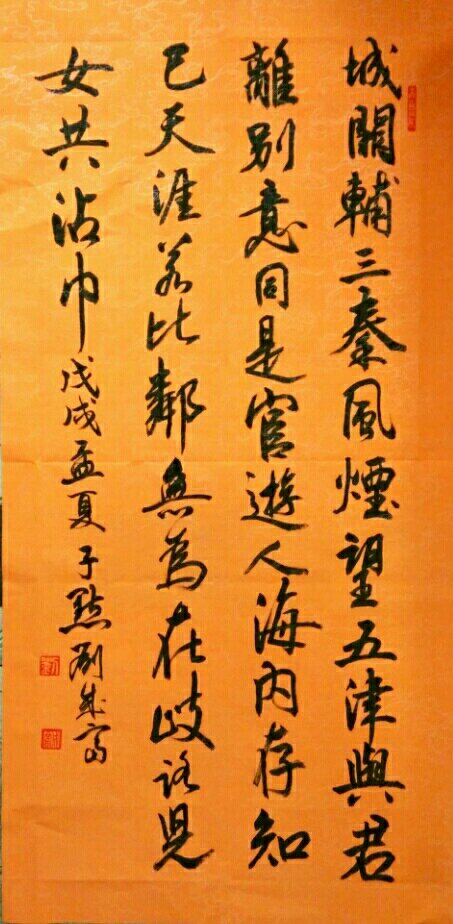 城闕輔三秦風煙望五津與君
離別意同是宦遊人海內存知
己天涯若比鄰無為在歧路兒
女共沾巾戊戌孟夏子劉成寫